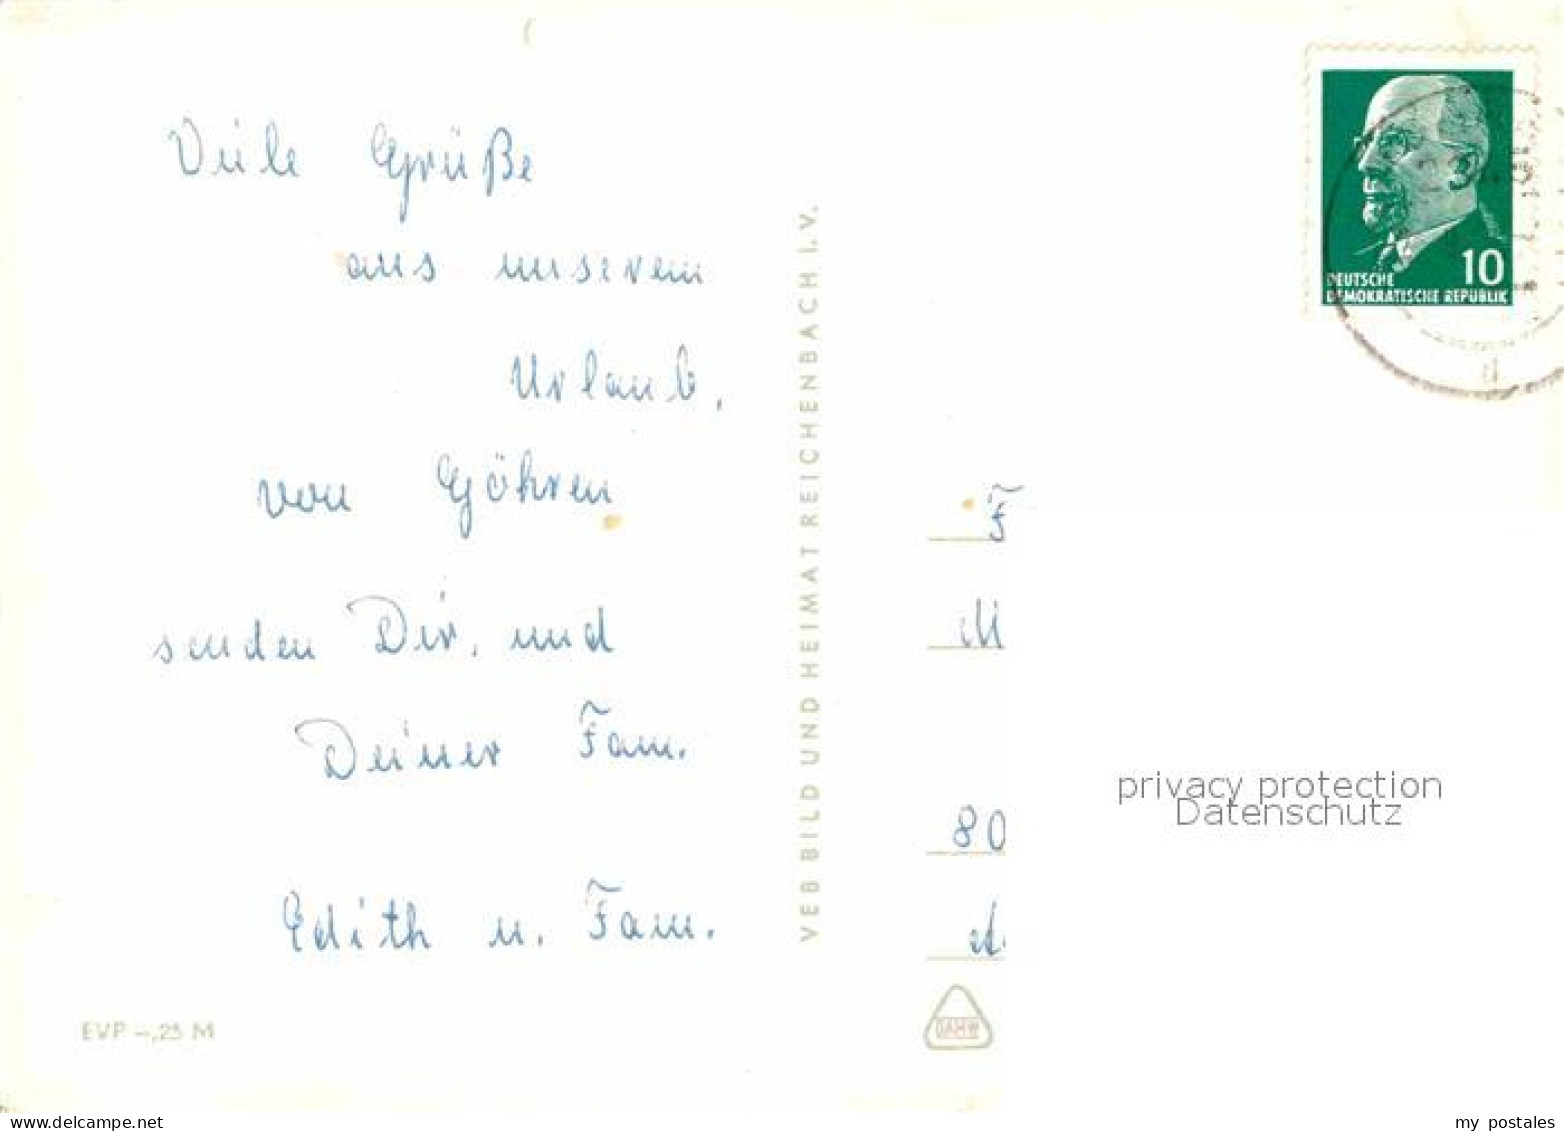 Viele Grüße
aus unserem
Urlaub,
von Göhren
senden Dir, und
Deiner Fam.
Edith u. Fam.
EVP –,25 M
VEB BILD UND HEIMAT REICHENBACH I. V.
10
DEUTSCHE
DEMOKRATISCHE REPUBLIK
F
M
80
privacy protection
Datenschutz
www.delcampe.net
my postales